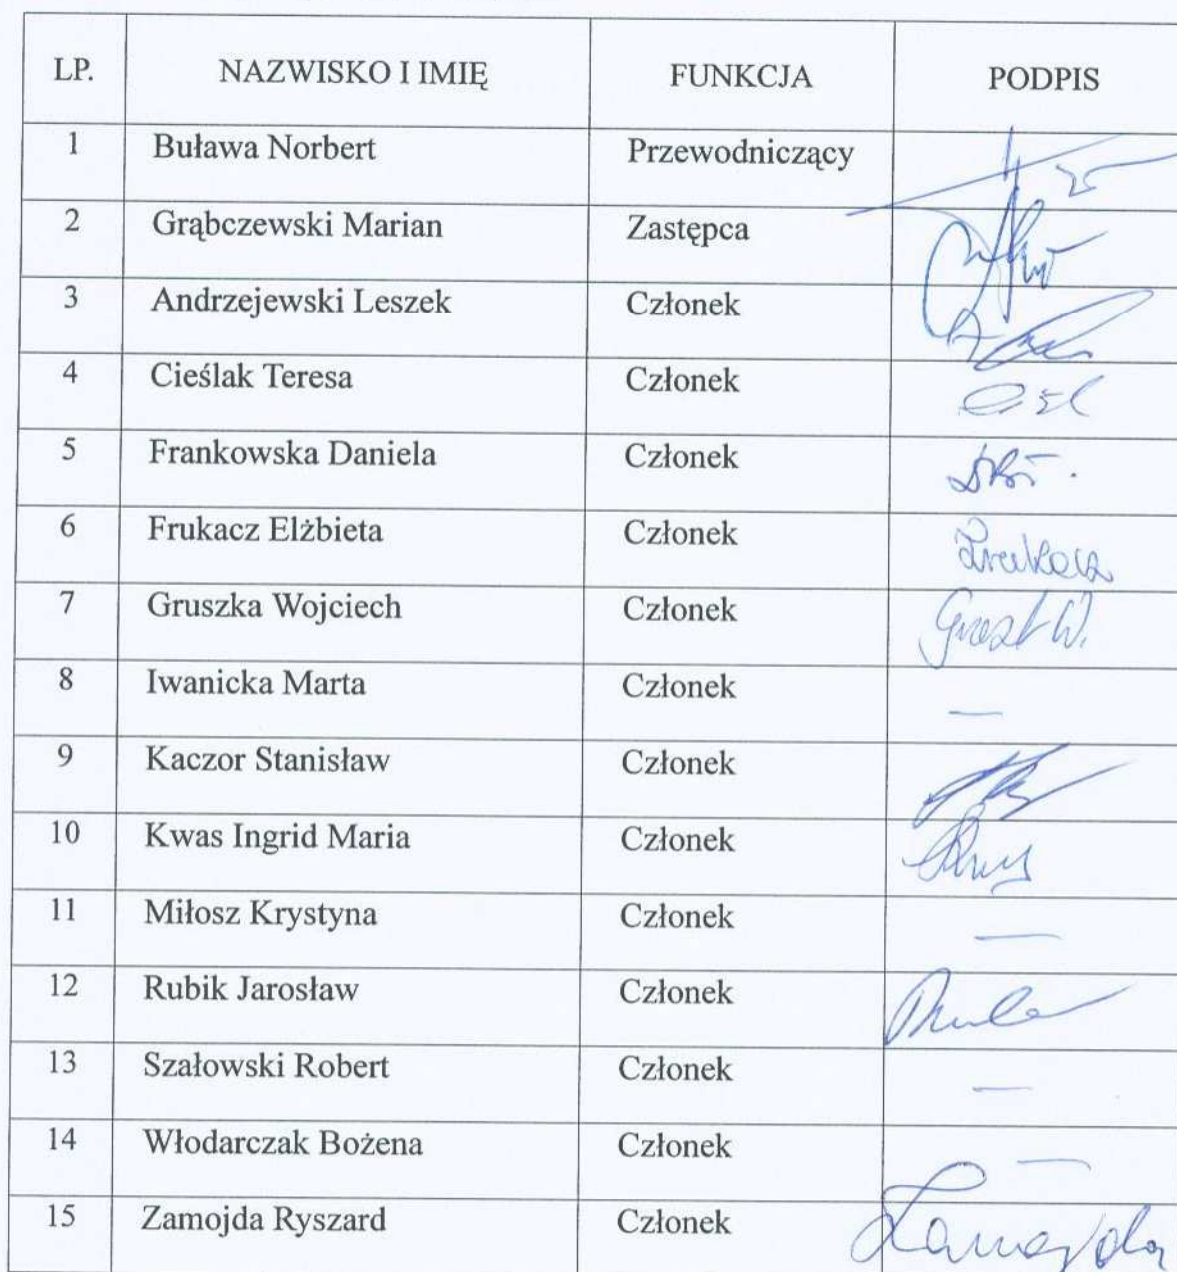 LP. NAZWISKO I IMIĘ FUNKCJA PODPIS
1 Buława Norbert Przewodniczący
2 Grąbczewski Marian Zastępca
3 Andrzejewski Leszek Członek
4 Cieślak Teresa Członek
5 Frankowska Daniela Członek
6 Frukacz Elżbieta Członek
7 Gruszka Wojciech Członek
8 Iwanicka Marta Członek —
9 Kaczor Stanisław Członek
10 Kwas Ingrid Maria Członek
11 Miłosz Krystyna Członek —
12 Rubik Jarosław Członek
13 Szałowski Robert Członek —
14 Włodarczak Bożena Członek —
15 Zamojda Ryszard Członek Zamojda